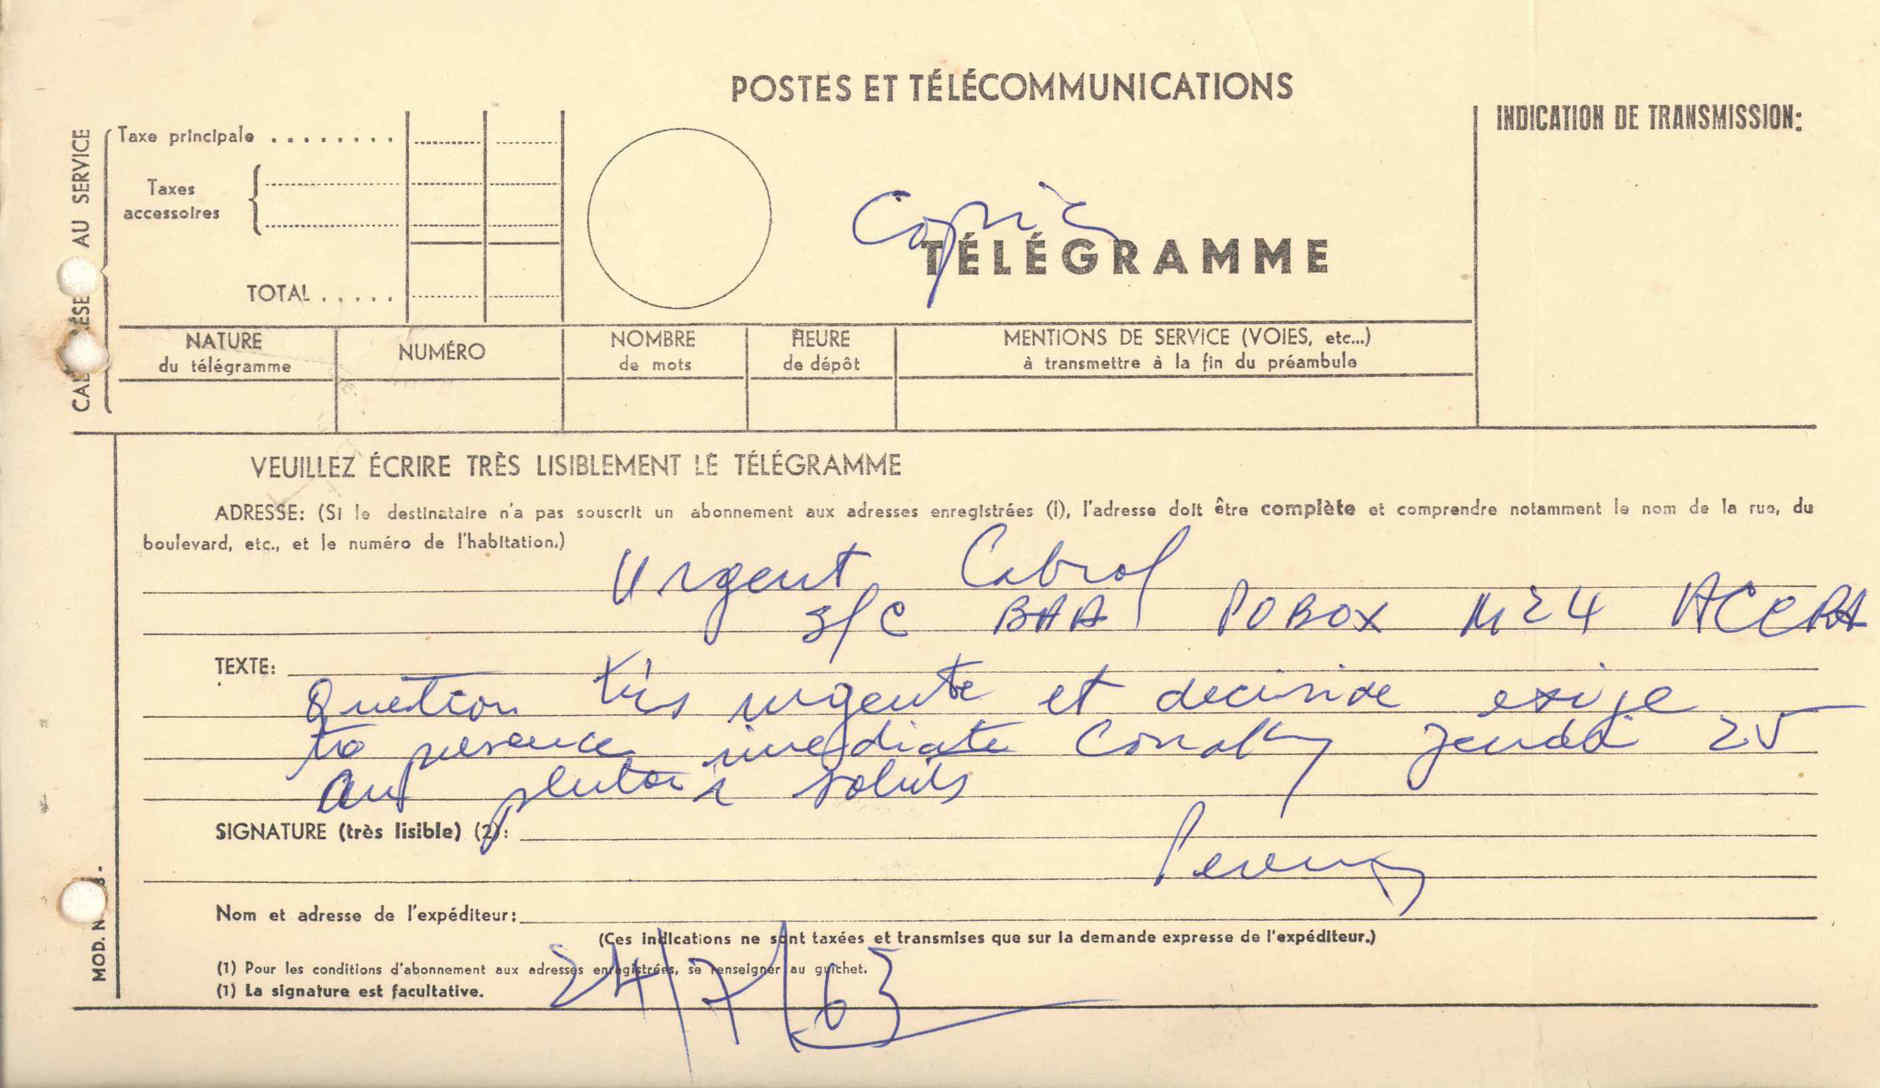 POSTES ET TÉLÉCOMMUNICATIONS
INDICATION DE TRANSMISSION:
AU SERVICE
Taxe principale ........
Taxes
accessoires
TOTAL .....
Copie
TÉLÉGRAMME
NATURE
du télégramme
NUMÉRO
NOMBRE
de mots
HEURE
de dépôt
MENTIONS DE SERVICE (VOIES, etc...)
à transmettre à la fin du préambule
VEUILLEZ ÉCRIRE TRÈS LISIBLEMENT LE TÉLÉGRAMME
ADRESSE: (Si le destinataire n'a pas souscrit un abonnement aux adresses enregistrées (I), l'adresse doit être complète et comprendre notamment le nom de la rue, du
boulevard, etc., et le numéro de l'habitation.)
Urgent Cabral
s/c BAA POBOX M24 ACCRA
TEXTE:
Question très urgente et decisive exige
ta presence immediate Conakry jeudi 25
au plutot
SIGNATURE (très lisible) (2):
Nom et adresse de l'expéditeur:
(Ces indications ne sont taxées et transmises que sur la demande expresse de l'expéditeur.)
(1) Pour les conditions d'abonnement aux adresses enregistrées, se renseigner au guichet.
(1) La signature est facultative.
24/7/63
MOD. N